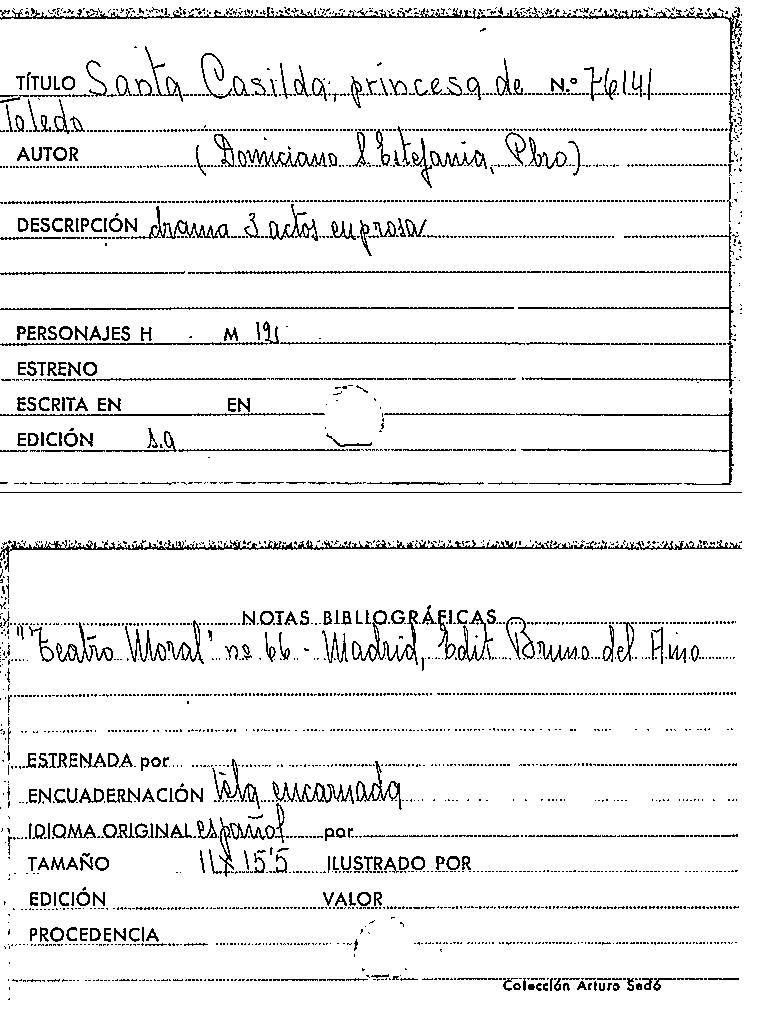 TÍTULO Santa Casilda, princesa de N.º 76141
Toledo
AUTOR (Domiciano S Estefania, Pbro)
DESCRIPCIÓN drama 3 actos en prosa
PERSONAJES H M 19
ESTRENO
ESCRITA EN EN
EDICIÓN s.a
NOTAS BIBLIOGRÁFICAS
"Teatro Moral" nº 66 - Madrid, Edit Bruno del Amo
ESTRENADA por
ENCUADERNACIÓN tela encarnada
IDIOMA ORIGINAL español por
TAMAÑO 11 x 15'5 ILUSTRADO POR
EDICIÓN VALOR
PROCEDENCIA
Colección Arturo Sedó